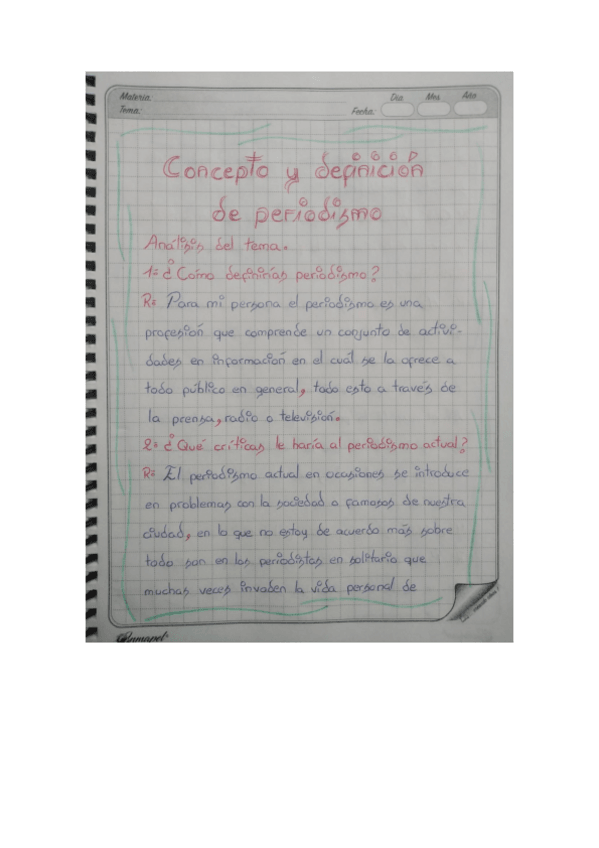 Materia:
Tema:
Fecha:
Día
Mes
Año
Concepto y definición
de periodismo
Análisis del tema.
1= ¿Cómo definirías periodismo?
R= Para mi persona el periodismo es una
profesión que comprende un conjunto de activi-
dades en información en el cuál se la ofrece a
todo público en general, todo esto a través de
la prensa, radio o televisión.
2= ¿Qué críticas le haría al periodismo actual?
R= El periodismo actual en ocasiones se introduce
en problemas con la sociedad o famosos de nuestra
ciudad, en lo que no estoy de acuerdo más sobre
todo son en los periodistas en solitario que
muchas veces invaden la vida personal de